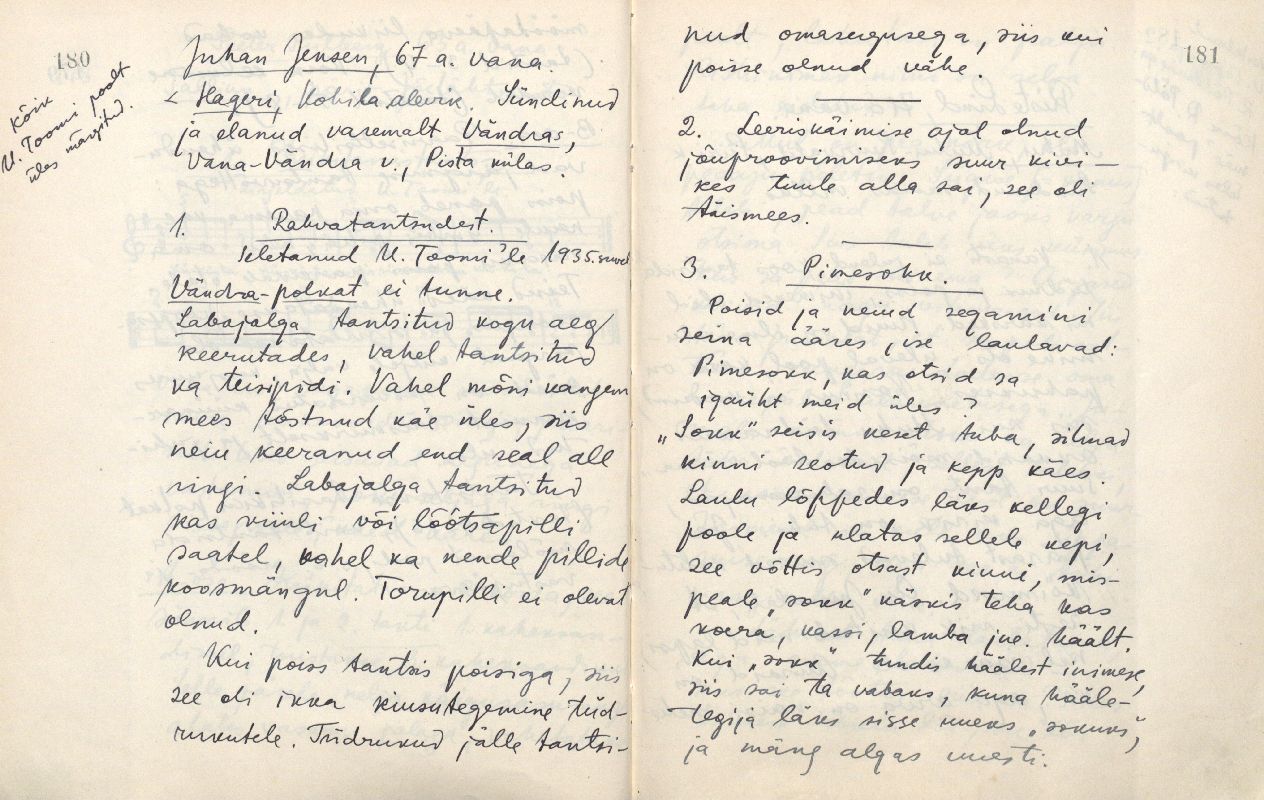 180
Kõik
U. Toomi poolt
üles märgitud.
Juhan Jensen, 67 a. vana
< Hageri, Kohila alevik. Sündinud
ja elanud varemalt Vändras,
Vana-Vändra v., Pista külas.
1. Rahvatantsudest.
Seletanud U. Toomi'le 1935.
Vändra-polkat ei tunne.
Labajalga tantsitud kogu aeg
keerutades, vahel tantsitud
ka teisipidi. Vahel mõni kangem
mees tõstnud käe üles, siis
neiu keeranud end seal all
ringi. Labajalga tantsitud
kas viiuli või lõõtsapilli
saatel, vahel ka nende pillide
koosmängul. Torupilli ei olevat
olnud.
Kui poiss tantsis poisiga, siis
see oli ikka kiusutegemine tüd-
rukutele. Tüdrukud jälle tantsi-
181
nud omasugusega, siis kui
poisse olnud vähe.
2. Leeriskäimise ajal olnud
jõuproovimiseks suur kivi -
kes tuule alla sai, see oli
täismees.
3. Pimesokk.
Poisid ja neiud segamini
seina ääres, ise laulavad:
Pimesokk, kas otsid sa
igaüht meid üles?
„Sokk" seisis keset tuba, silmad
kinni seotud ja kepp käes.
Laulu lõppedes läks kellegi
poole ja ulatas sellele kepi,
see võttis otsast kinni, mis-
peale „sokk" käskis teha kas
koera, kassi, lamba jne. häält.
Kui „sokk" tundis häälest inimese,
siis sai ta vabaks, kuna hääle-
tegija läks sisse uueks „sokuks",
ja mäng algas uuesti.